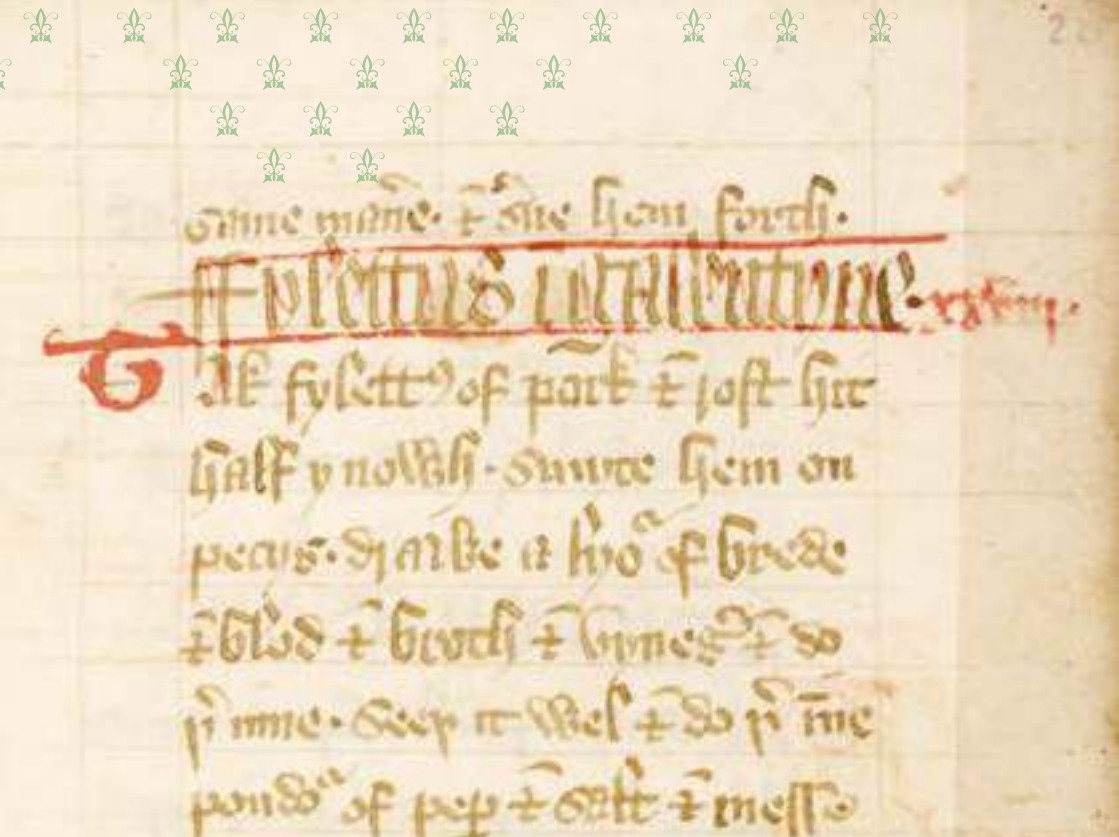 same mane. & sue hem forth.
ffylettus in galentyne. xxviij.
Tak fylettꝰ of pork & rost hit
half ynowh. smyte hem on
pecys. drawe a lyoͬ of brede
& blod & broth & vyneg & do
þͥ inne. Seeþ it wel & do þͥ inne
poudoͬ of pep & salt & messe